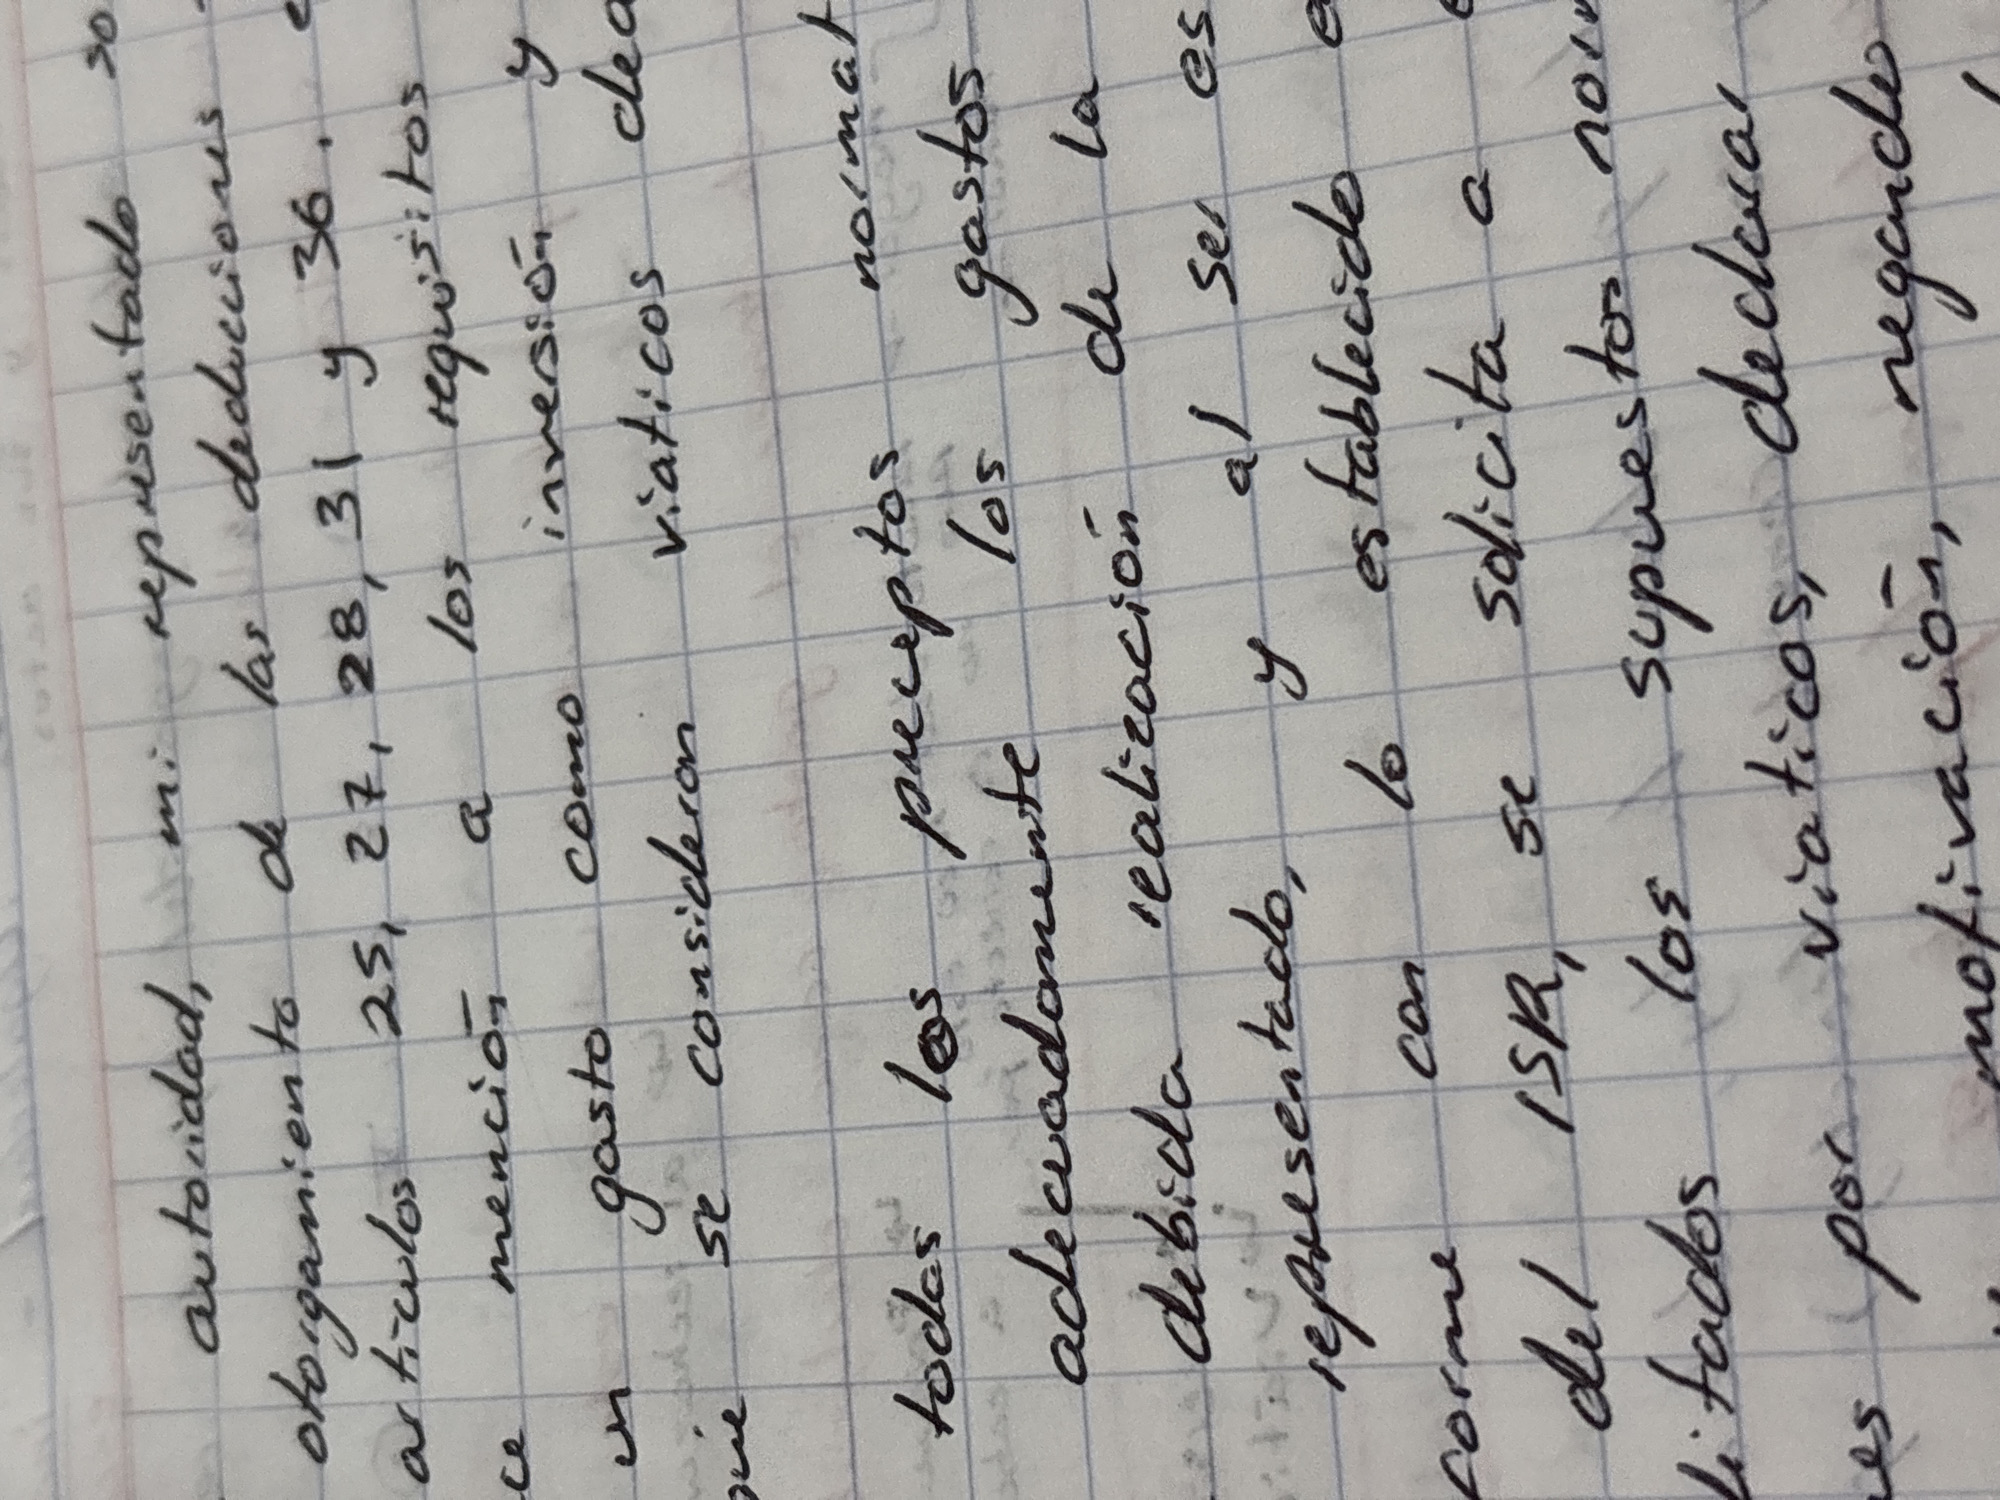 autoridad, mi representado so
otorgamiento de las deducciones
artículos 25, 27, 28, 31 y 36.
ce mención a los requisitos
un gasto como inversión y
que se consideran viaticos dea
todos los preceptos normat
adecuadamente los gastos
debida realización de la
representado, y al ser es
corme con lo establecido
del ISR, se solicita a
ditados los supuestos nor
es por viaticos, declarar
motivación, negando